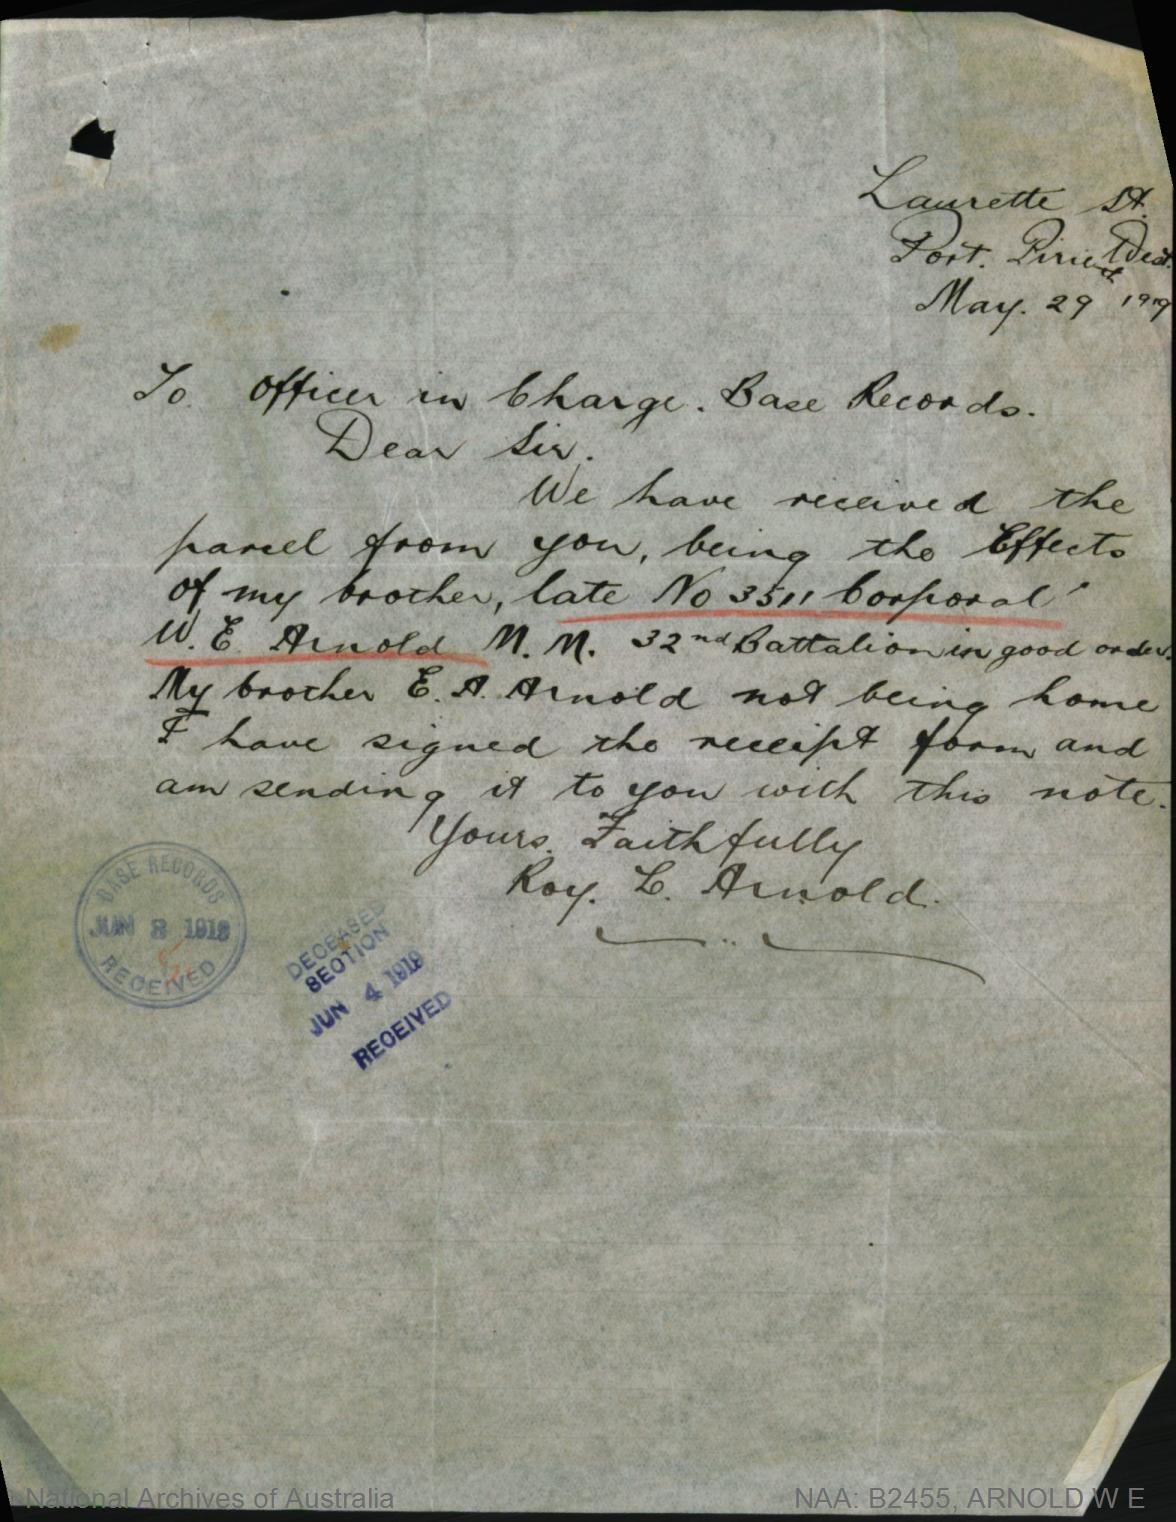 Laurette St.
Port. Pirie West.
May. 29 1919
To. Officer in Charge. Base Records.
Dear Sir.
We have received the
parcel from you, being the Effects
of my brother, late No 3511 Corporal
W. E. Arnold M. M. 32nd Battalion in good order.
My brother E. A. Arnold not being home
I have signed the receipt form and
am sending it to you with this note.
Yours. Faithfully
Roy. L. Arnold.
BASE RECORDS
JUN 3 1919
RECEIVED
DECEASED
SECTION
JUN 4 1919
RECEIVED
National Archives of Australia
NAA: B2455, ARNOLD W E